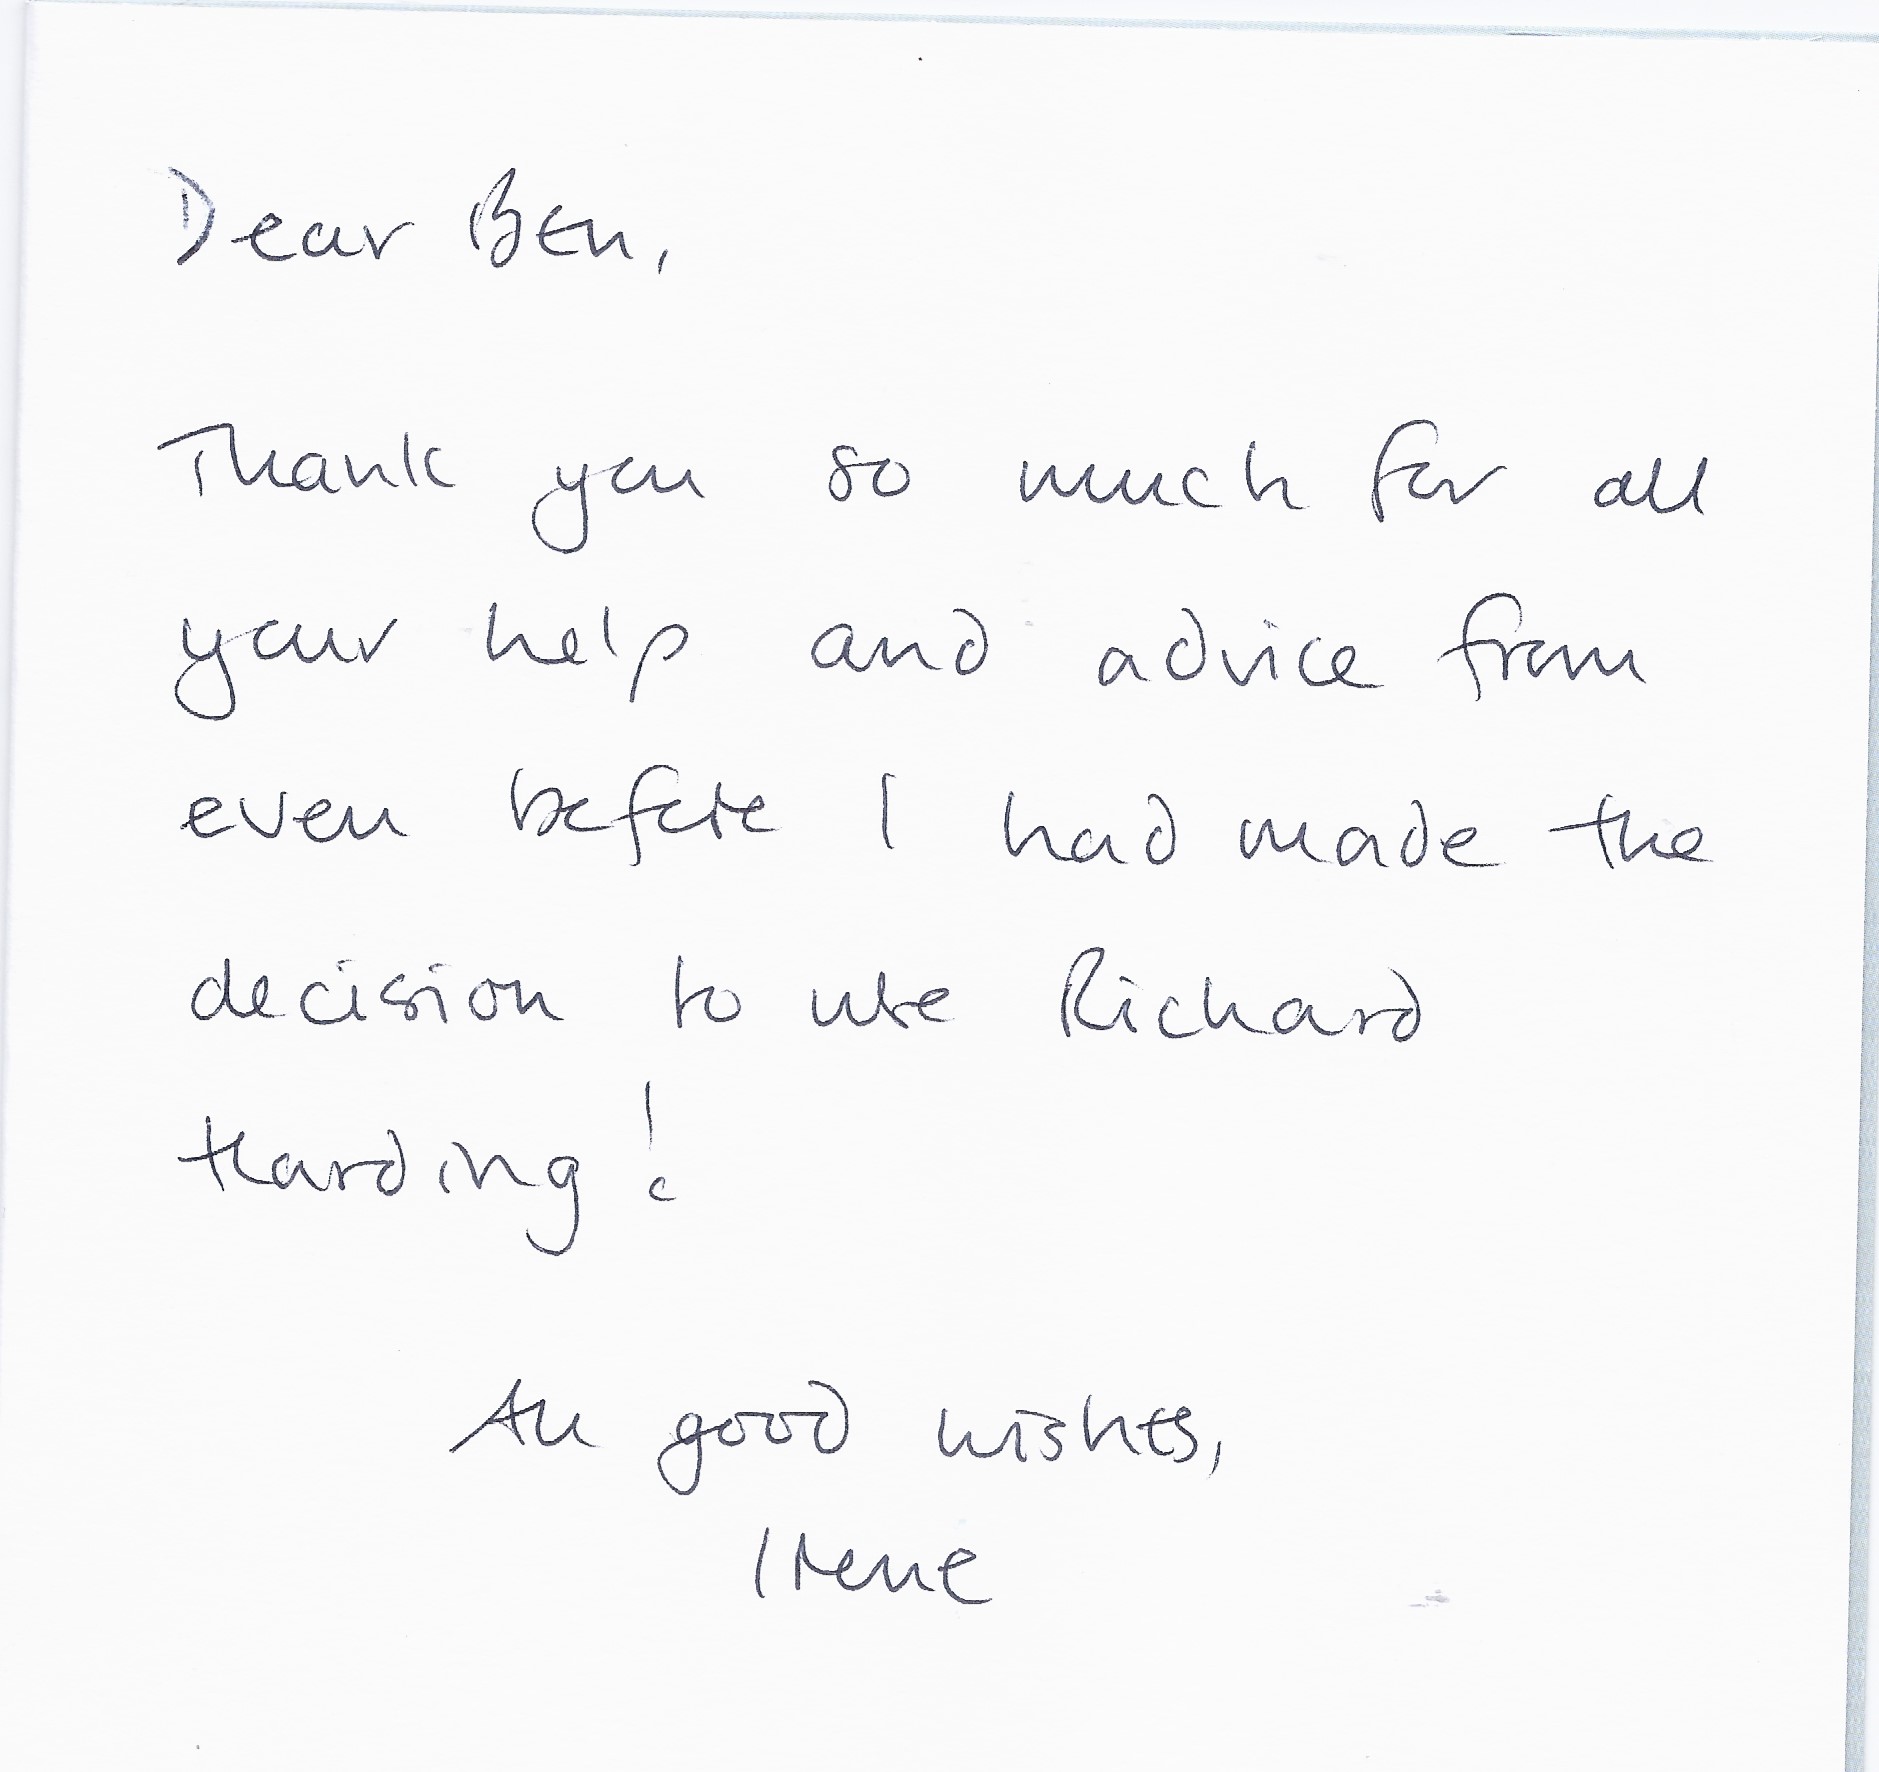 Dear Ben,
Thank you so much for all
your help and advice from
even before I had made the
decision to use Richard
Harding!
All good wishes,
Irene